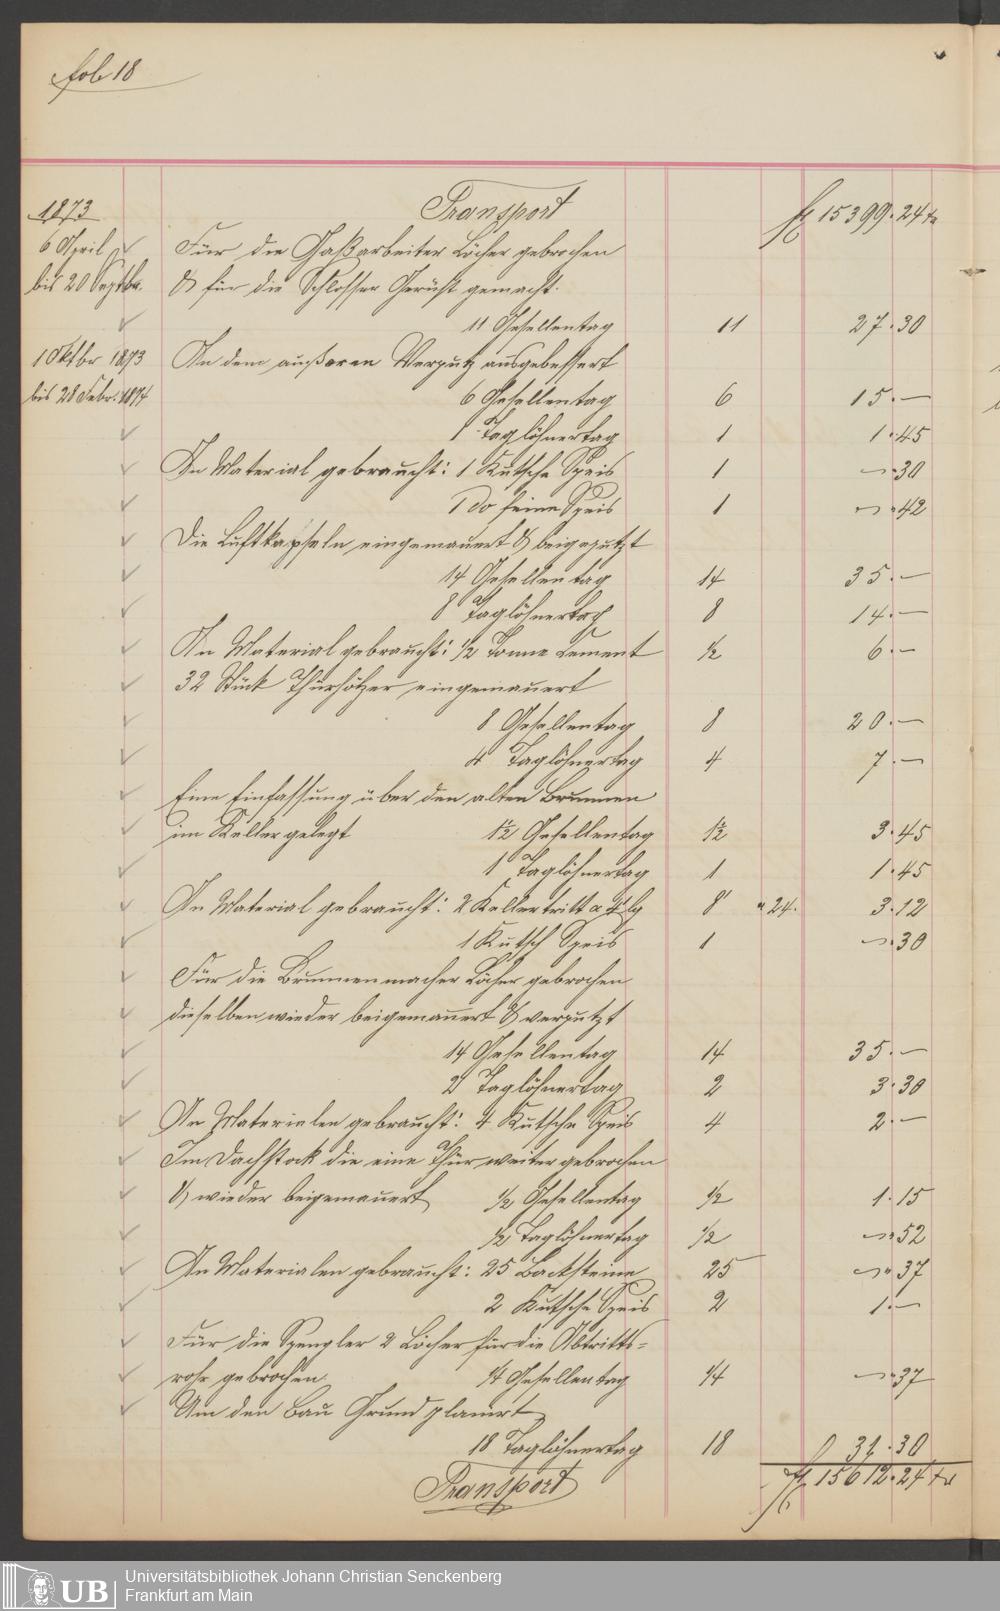 fol 18
1873 Transport fl 15399.24 kr
6 April Für die Gaßarbeiter Löcher gebrochen
bis 20 Septbr. & für die Schlosser Gerüst gemacht.
11 Gesellentag 11 27.30
1 Oktbr 1873 An dem äußeren Verputz ausgebessert
bis 28 Febr. 1874 6 Gesellentag 6 15.—
1 Taglöhnertag 1 1.45
An Material gebraucht: 1 Kutsche Speis 1 —.30
1 do feine Speis 1 —.42
Die Luftkapseln eingemauert & beigeputzt
14 Gesellentag 14 35.—
8 Taglöhnertag 8 14.—
An Material gebraucht: 1/2 Tonne Cement 1/2 6.—
32 Stück Thürhölzer eingemauert
8 Gesellentag 8 20.—
4 Taglöhnertag 4 7.—
Eine Einfassung über den alten Brunnen
im Keller gelegt 1 1/2 Gesellentag 1 1/2 3.45
1 Taglöhnertag 1 1.45
An Material gebraucht: 2 Kellertritt a 4' lg 8' a 24. 3.12
1 Kutsch Speis 1 —.30
Für die Brunnenmacher Löcher gebrochen
dieselben wieder beigemauert & verputzt
14 Gesellentag 14 35.—
2 Taglöhnertag 2 3.30
An Materialen gebraucht: 4 Kutsche Speis 4 2.—
Im Dachstock die eine Thür weiter gebrochen
& wieder beigemauert 1/2 Gesellentag 1/2 1.15
1/2 Taglöhnertag 1/2 —.52
An Materialen gebraucht: 25 Backsteine 25 —.37
2 Kutsche Speis 2 1.—
Für die Spengler 2 Löcher für die Abtritts=
rohr gebrochen 1/4 Gesellentag 1/4 —.37
Um den Bau Grund planirt
18 Taglöhnertag 18 31.30
Transport fl 15612.24 kr
UB
Universitätsbibliothek Johann Christian Senckenberg
Frankfurt am Main